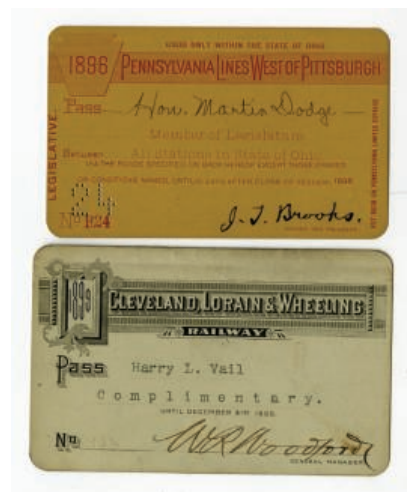 GOOD ONLY WITHIN THE STATE OF OHIO
1896 PENNSYLVANIA LINES WEST OF PITTSBURGH
LEGISLATIVE.
Pass Hon. Martin Dodge
Member of Legislature
Between All Stations in State of Ohio
OR CONDITIONS NAMED, UNTIL DAYS AFTER CLOSE OF SESSION, 1896
24
No 124
J. T. Brooks.
1899
CLEVELAND, LORAIN & WHEELING
RAILWAY
Pass Harry L. Vail
Complimentary.
UNTIL DECEMBER 31ST 1899.
No
W R Woodford
GENERAL MANAGER